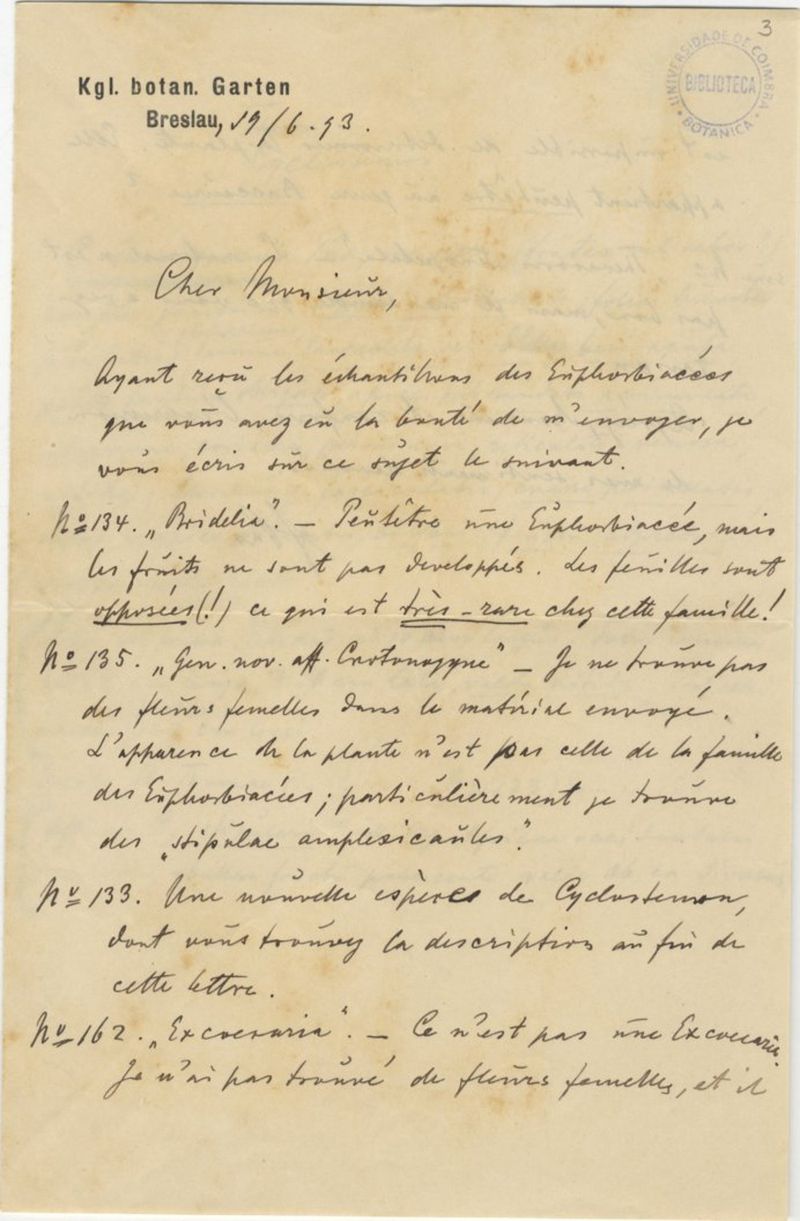 3
UNIVERSIDADE DE COIMBRA
BIBLIOTECA
BOTANICA
Kgl. botan. Garten
Breslau, 19/6.93.
Cher Monsieur,
Ayant reçu les échantillons des Euphorbiacées
que vous avez eu la bonté de m'envoyer, je
vous écris sur ce sujet le suivant.
No 134. „Bridelia". — Peutêtre une Euphorbiacée, mais
les fruits ne sont pas developpés. Les feuilles sont
opposées (!) ce qui est très-rare chez cette famille!
No 135. „Gen. nov. aff. Crotonogyne" — Je ne trouve pas
des fleurs femelles dans le matérial envoyé.
L'apparence de la plante n'est pas celle de la famille
des Euphorbiacées; particulièrement je trouve
des „stipulae amplexicaules".
No 133. Une nouvelle espèce de Cyclostemon,
dont vous trouvez la description au fin de
cette lettre.
No 162. „Excoecaria". — Ce n'est pas une Excoecaria.
Je n'ai pas trouvé de fleurs femelles, et il